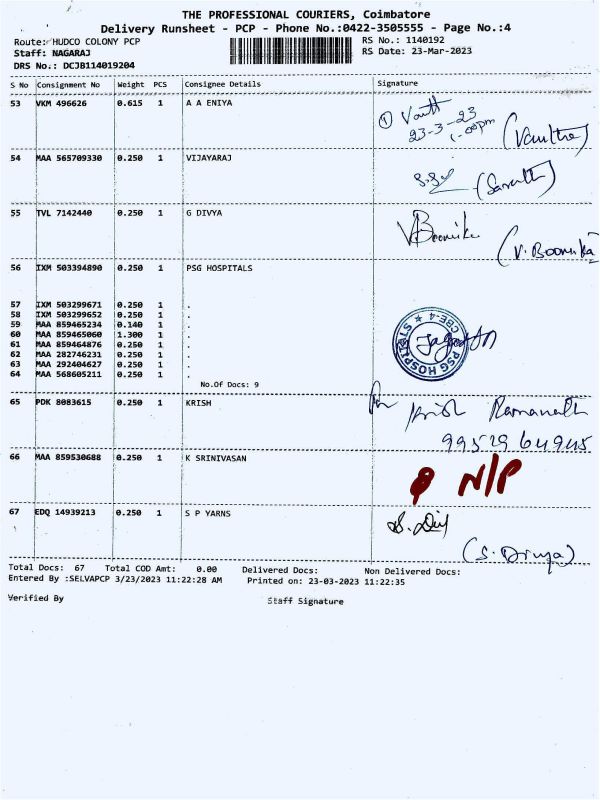 THE PROFESSIONAL COURIERS, Coimbatore
Delivery Runsheet - PCP - Phone No.:0422-3505555 - Page No.:4
Route: HUDCO COLONY PCP
RS No.: 1140192
Staff: NAGARAJ
RS Date: 23-Mar-2023
DRS No.: DCJB114019204
S No Consignment No Weight PCS Consignee Details Signature
53 VKM 496626 0.615 1 A A ENIYA
23-3-23
1.00pm
54 MAA 565709330 0.250 1 VIJAYARAJ
(Sarath)
55 TVL 7142440 0.250 1 G DIVYA
V Boomika
(V. Boomika)
56 IXM 503394890 0.250 1 PSG HOSPITALS
57 IXM 503299671 0.250 1 .
58 IXM 503299652 0.250 1 .
59 MAA 859465234 0.140 1 .
60 MAA 859465060 1.300 1 .
61 MAA 859464876 0.250 1 .
62 MAA 282746231 0.250 1 .
63 MAA 292404627 0.250 1 .
64 MAA 568605211 0.250 1 .
PSG HOSPITALS
CBE-4
No.Of Docs: 9
65 PDK 8083615 0.250 1 KRISH
Krish Ramanath
9952964945
66 MAA 859530688 0.250 1 K SRINIVASAN
N/P
67 EDQ 14939213 0.250 1 S P YARNS
(S. Divya)
Total Docs: 67 Total COD Amt: 0.00 Delivered Docs: Non Delivered Docs:
Entered By :SELVAPCP 3/23/2023 11:22:28 AM Printed on: 23-03-2023 11:22:35
Verified By Staff Signature